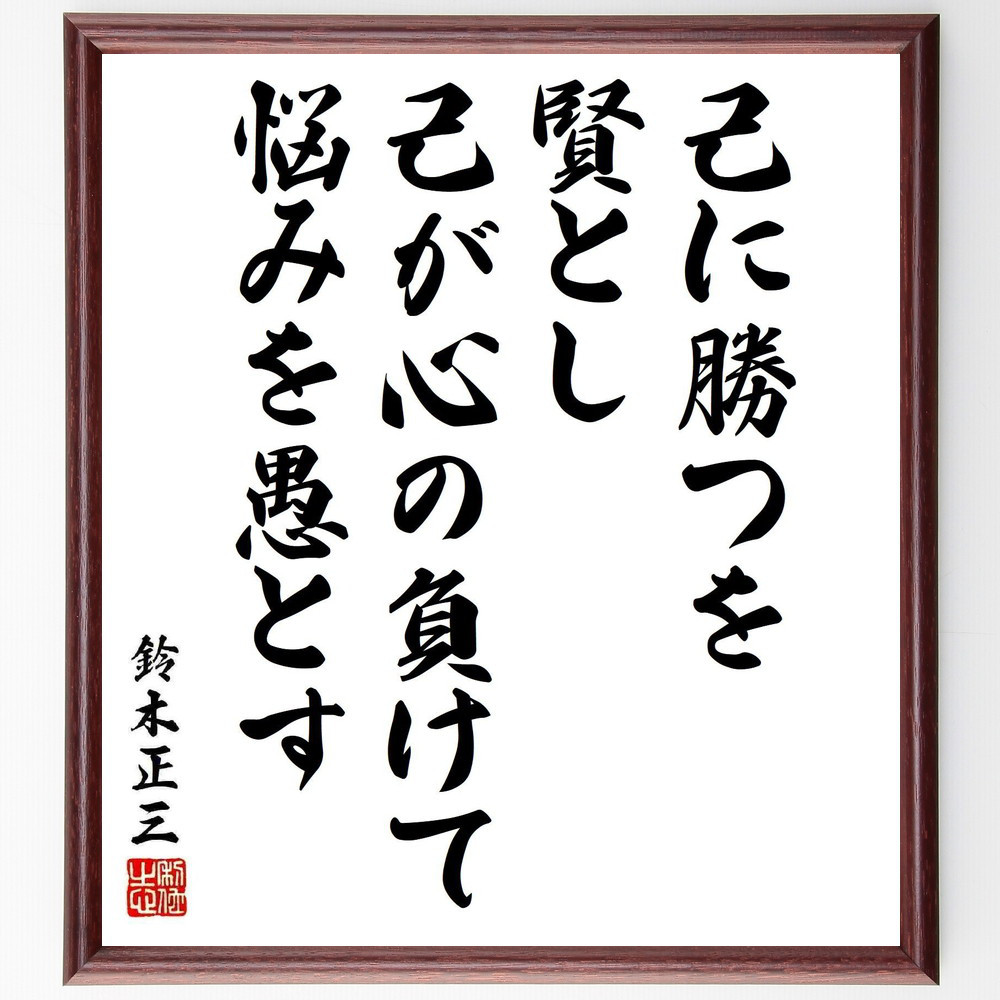 己に勝つを
賢とし
己が心の負けて
悩みを愚とす
鈴木正三